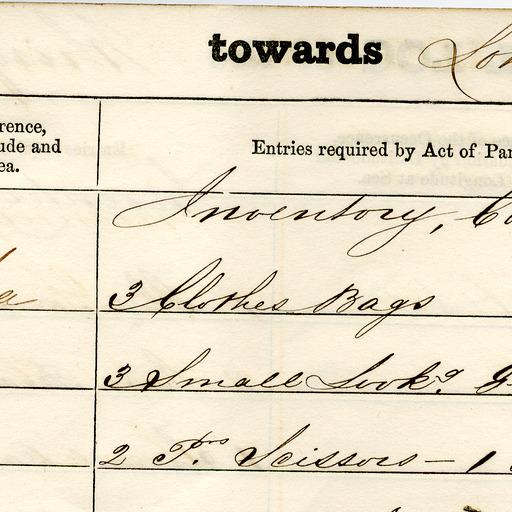 towards Lon
rence,
ude and
ea.
Entries required by Act of Par
Inventory, Co
a
3 Clothes Bags
3 Small Lookg. G
2 Prs. Scissors – 1